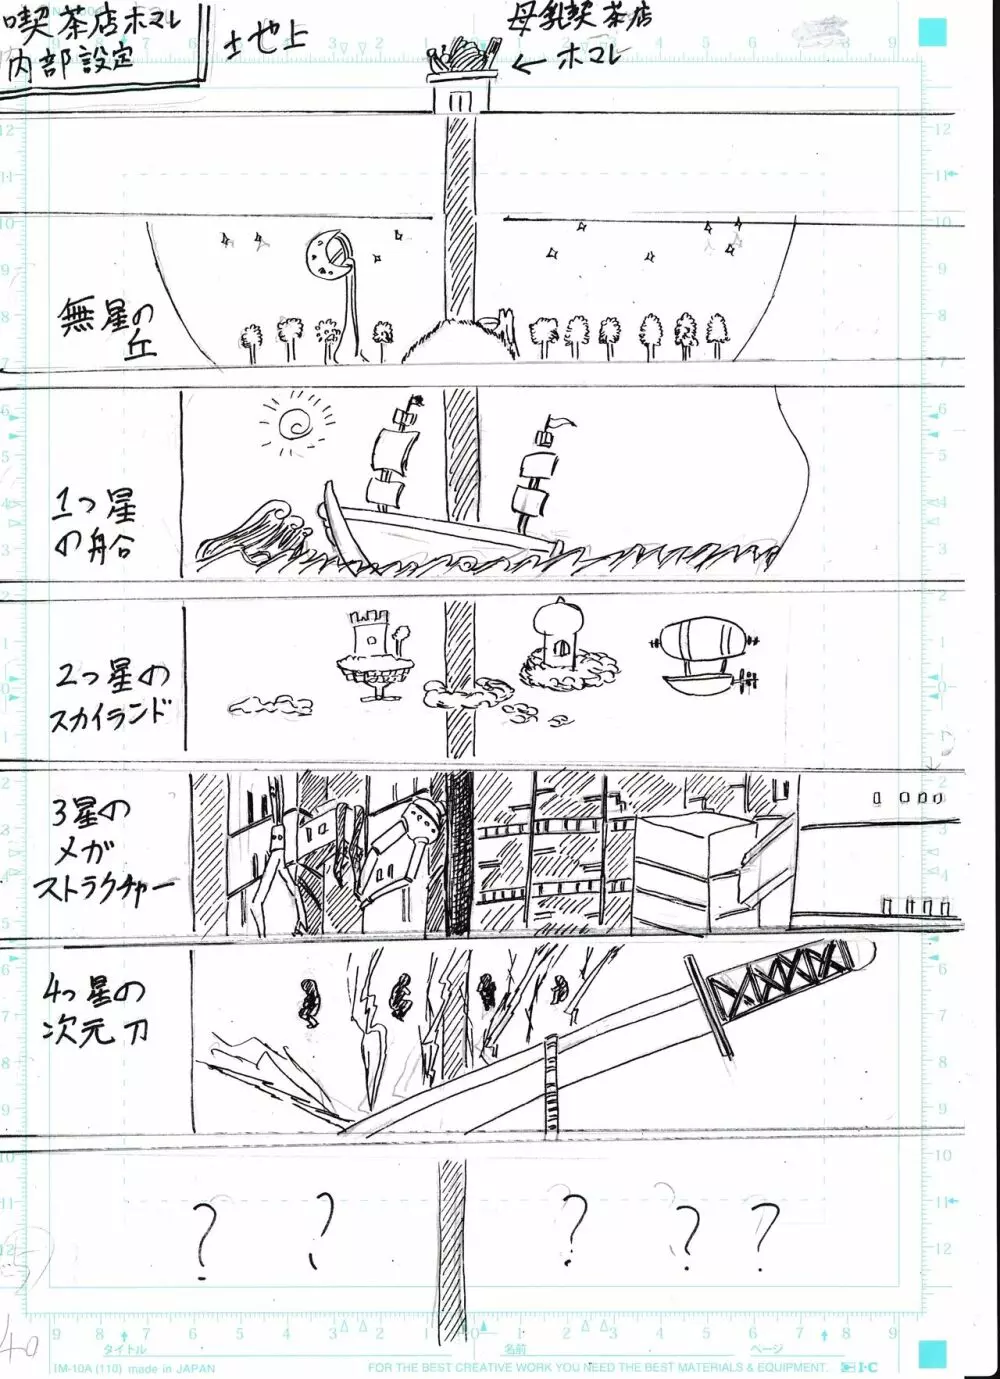 喫茶店ホマレ
内部設定
土地上
母乳喫茶店
← ホマレ
無星の
丘
1つ星
の船
2つ星の
スカイランド
3星の
メガ
ストラクチャー
4つ星の
次元刀
? ? ? ? ?
タイトル
名前
ページ
IM-10A (110) made in JAPAN
FOR THE BEST CREATIVE WORK YOU NEED THE BEST MATERIALS & EQUIPMENT.
I·C